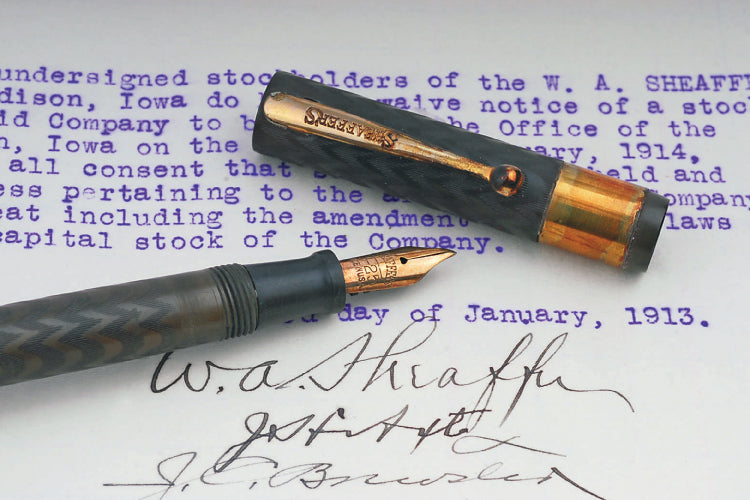 undersigned stockholders of the W. A. SHEAFFE
dison, Iowa do waive notice of a stoc
ld Company to b the Office of the
n, Iowa on the uary, 1914,
all consent that s held and
ess pertaining to the a ompany
eat including the amendment laws
capital stock of the Company.
day of January, 1913.
SHEAFFER'S
W. A. Sheaffer